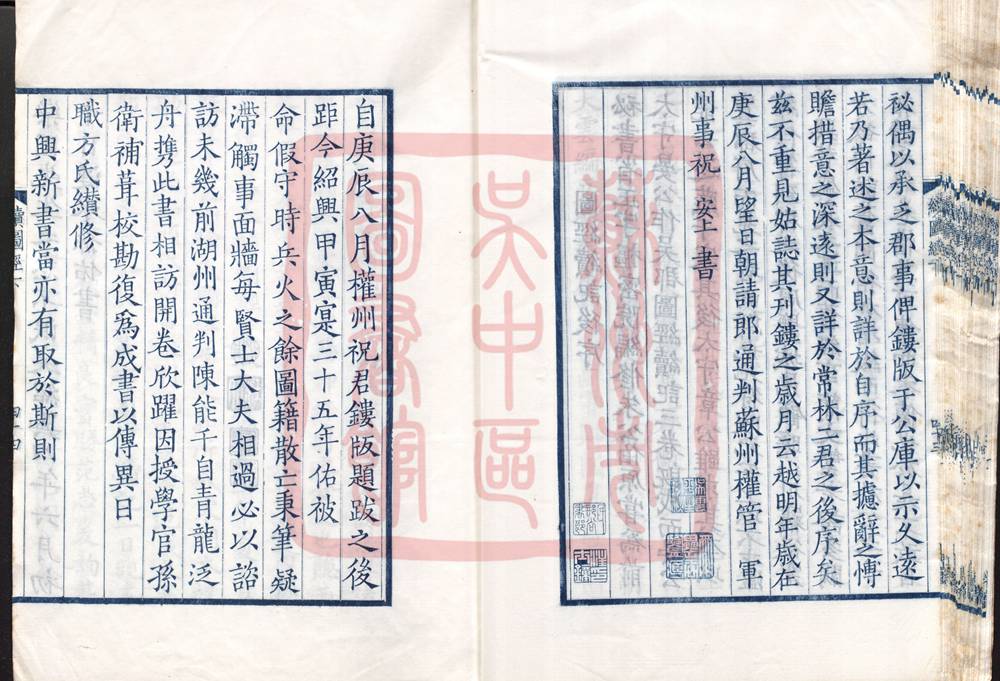 祕偶以承乏郡事俾鏤版于公庫以示久遠
若乃著述之本意則詳於自序而其攄辭之博
贍措意之深遠則又詳於常林二君之後序矣
茲不重見姑誌其刊鏤之歲月云越明年歲在
庚辰八月望日朝請郎通判蘇州權管 軍
州事祝 安上 書
自庚辰八月權州祝君鏤版題跋之後
距今紹興甲寅寔三十五年佑被
命假守時兵火之餘圖籍散亡秉筆疑
滯觸事面牆每賢士大夫相過必以諮
訪未幾前湖州通判陳能千自青龍泛
舟携此書相訪開卷欣躍因授學官孫
衛補葺校勘復爲成書以傳異日
職方氏纘修
中興新書當亦有取於斯則
續圖經下
四十四
蘇州市
吳中區
圖書館